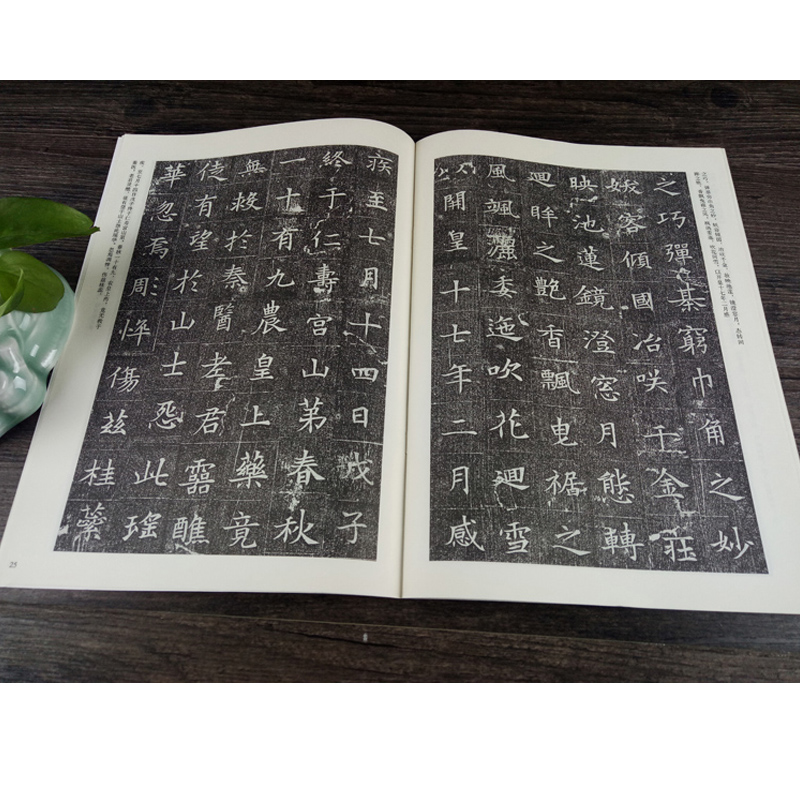 之巧彈棊窮巾角之妙
容傾國冶咲千金莊
映池蓮鏡澄窓月態轉
迴眸之艷香飄曳裾之
風颯灑委迤吹花迴雪
以開皇十七年二月感
疾至七月十四日戊子
終于仁壽宮山第春秋
一十有九農皇上藥竟
無救於秦醫老君靈醮
徒有望於山士怨此瑤
華忽焉彫悴傷茲桂蘂
25